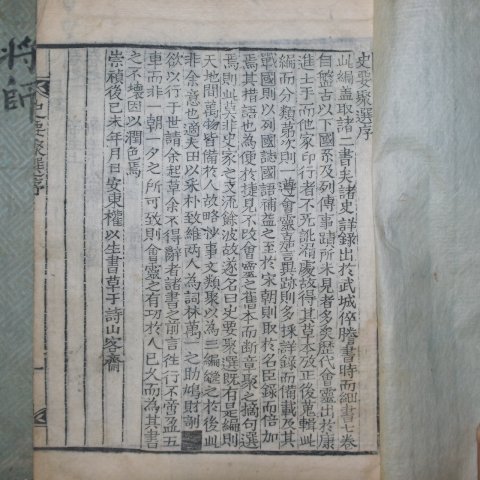 史要聚選序
此編盖取諸二書矣諸史詳錄出於武城倅謄書時而細書七卷
自盤古以下國系及列傳事蹟所未見者多矣歷代會靈出於康
進士于而他家印行者不死訛漏處故得其草本攷正後蒐輯此
編而分類第次則一遵會靈嘉言異跡則多採詳錄而備載及其
戰國則以列國誌國語補益之至於宋朝則取於名臣錄而倍加
焉其措語也為便於捷見不改會靈之舊本而斷章聚之摘句選
焉則此莫非史家之支流餘波故遂名曰史要聚選既有是編則
天地間萬物皆備於人故略抄事文類聚以為三編繼之於後此
非余意也適田以采朴致維兩人為詞林萬一之助鳩財剞
欲以行于世請余起草余不得辭者諸書之前言往行不啻盈五
車而非一朝一夕之所可致則會靈之有功於人已久而為其書
之不壞因以潤色焉
崇禎後己未年月日安東權以生書草于詩山客齋
史要聚選序
將師